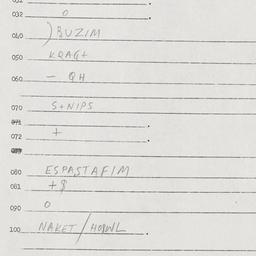 032 O
040 )BUZIM
050 KRAG+
060 - QH
070 S+NIPS
071
072 +
080 ESPASTAFIM
081 +$
090 O
100 NAKET/